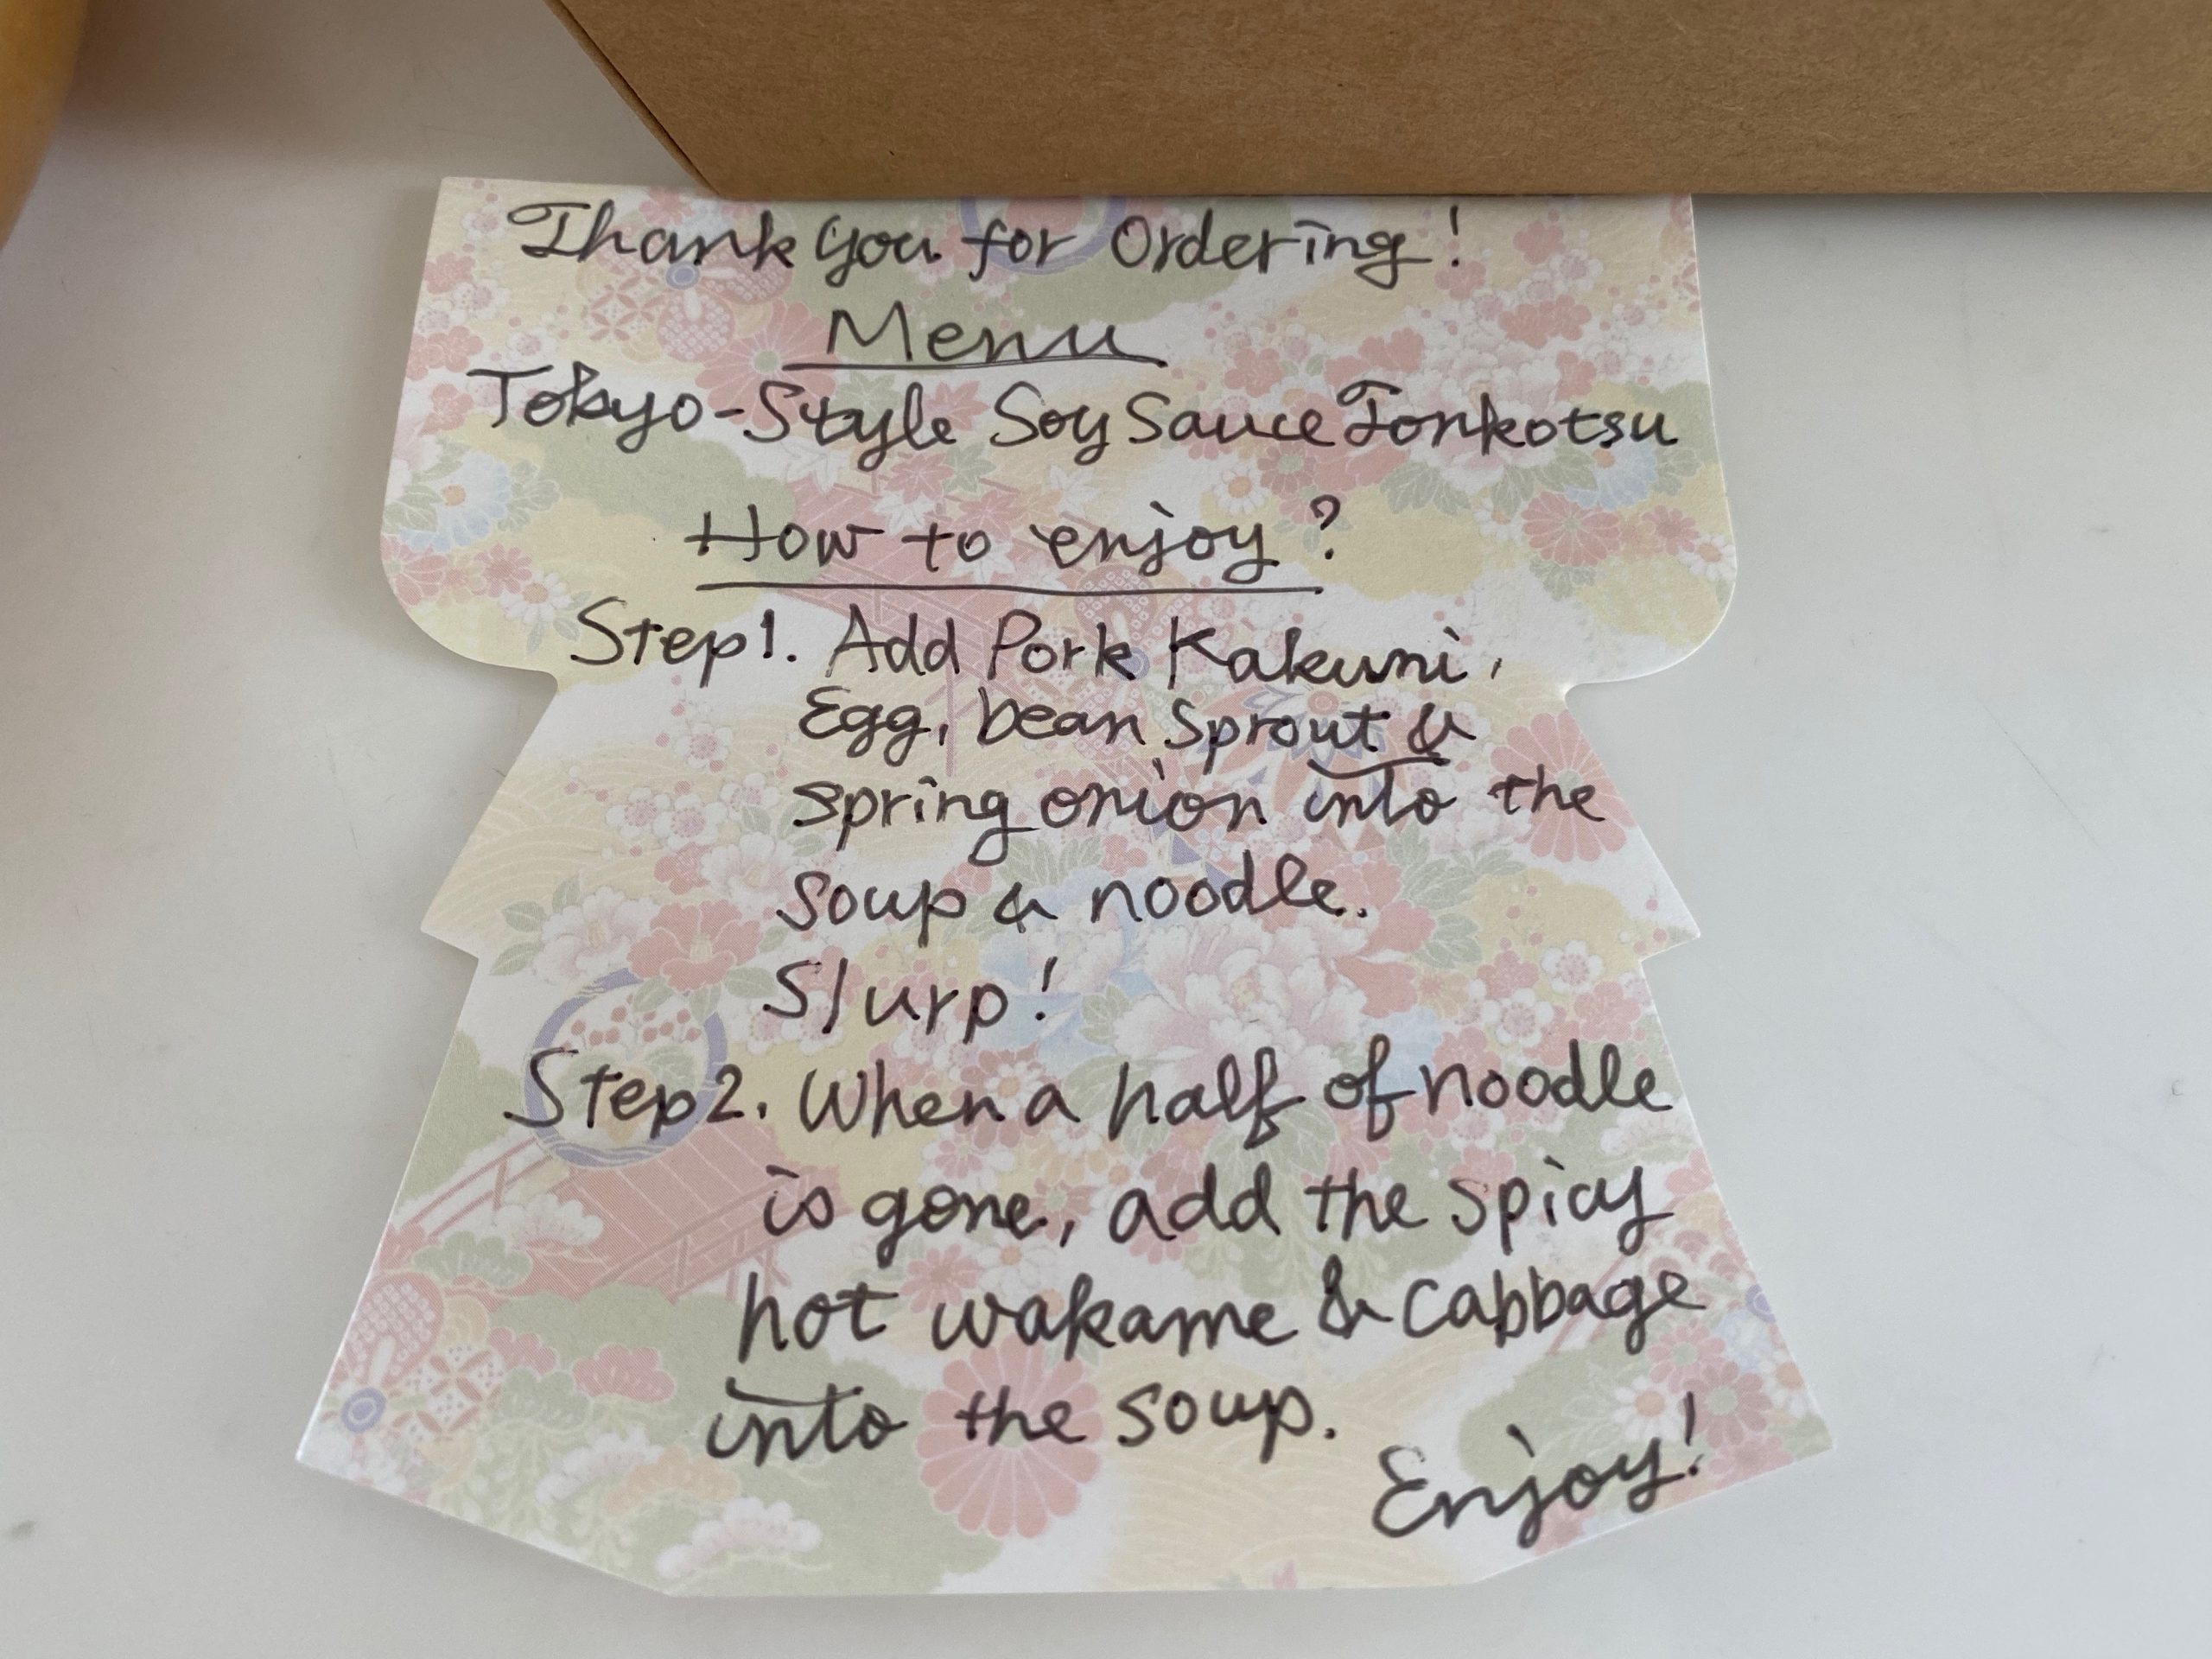 Thank you for Ordering!
Menu
Tokyo-Style Soy Sauce Tonkotsu
How to enjoy?
Step1. Add Pork Kakuni,
Egg, bean sprout &
spring onion into the
soup & noodle.
Slurp!
Step2. When a half of noodle
is gone, add the spicy
hot wakame & cabbage
into the soup.
Enjoy!